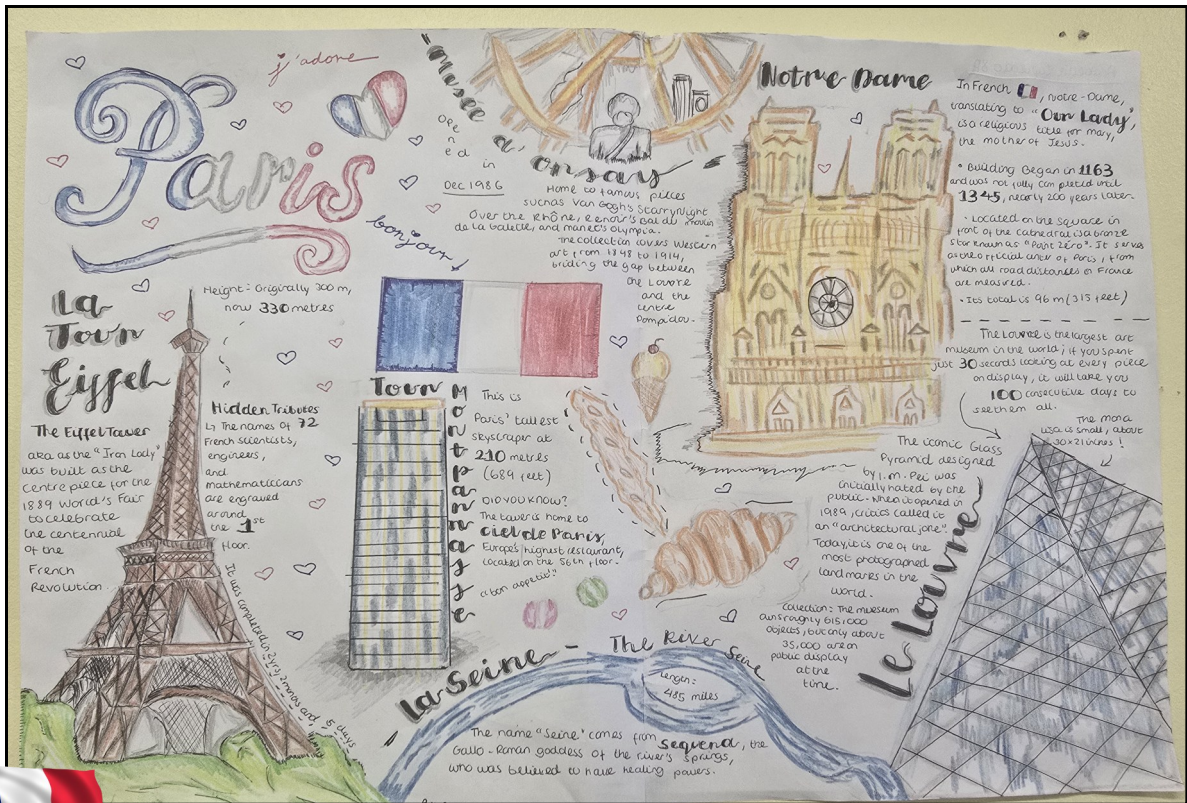 j'adore
Paris
bonjour
La
Tour
Eiffel
Height: Originally 300 m,
now 330 metres
The Eiffel Tower
aka as the "Iron Lady"
was built as the
centre piece for the
1889 World's Fair
to celebrate
the centennial
of the
French
Revolution.
Hidden Tributes
↳ The names of 72
French scientists,
engineers,
and
mathematicians
are engraved
around
the 1st
floor.
It was completed in 2 yrs, 2 months and 5 days
Musée d'orsay
opened
in
Dec 1986
Home to famous pieces
such as Van Goghs Starry Night
Over the Rhône, Renoir's Bal du moulin
de la Galette, and manet's Olympia.
The collection covers Western
art from 1848 to 1914,
briding the gap between
the Louvre
and the
centre
Pompidou.
Tour
Montparnasse
This is
Paris' tallest
skyscraper at
210 metres
(689 feet)
DID YOU KNOW?
The tower is home to
ciel de Paris,
Europe's highest restaurant,
located on the 56th floor.
"bon appetit"
Notre Dame
In French , Notre-Dame,
translating to "Our Lady",
is a religious title for mary,
the mother of Jesus.
• Building Began in 1163
and was not fully completed until
1345, nearly 200 years later.
• Located on the square in
front of the cathedral is a bronze
star known as "Point Zéro". It serves
as the official centr of Paris, from
which all road distances in France
are measured.
• Its total is 96 m (315 feet)
The Louvre is the largest art
museum in the world; if you spent
just 30 seconds looking at every piece
on display, it will take you
100 consecutive days to
see them all.
The mona
lisa is small, about
30x21 inches!
The iconic Glass
Pyramid designed
by I.m. Pei was
initially hated by the
public. When it opened in
1989, critics called it
an "architectural joke".
Today, it is one of the
most photographed
landmarks in the
world.
Collection: The museum
owns roughly 615,000
objects, but only about
35,000 are on
public display
at the
time.
Le Louvre
La Seine - The River Seine
length:
485 miles
The name "Seine" comes from Sequena, the
Gallo-Roman goddess of the river's springs,
who was believed to have healing powers.